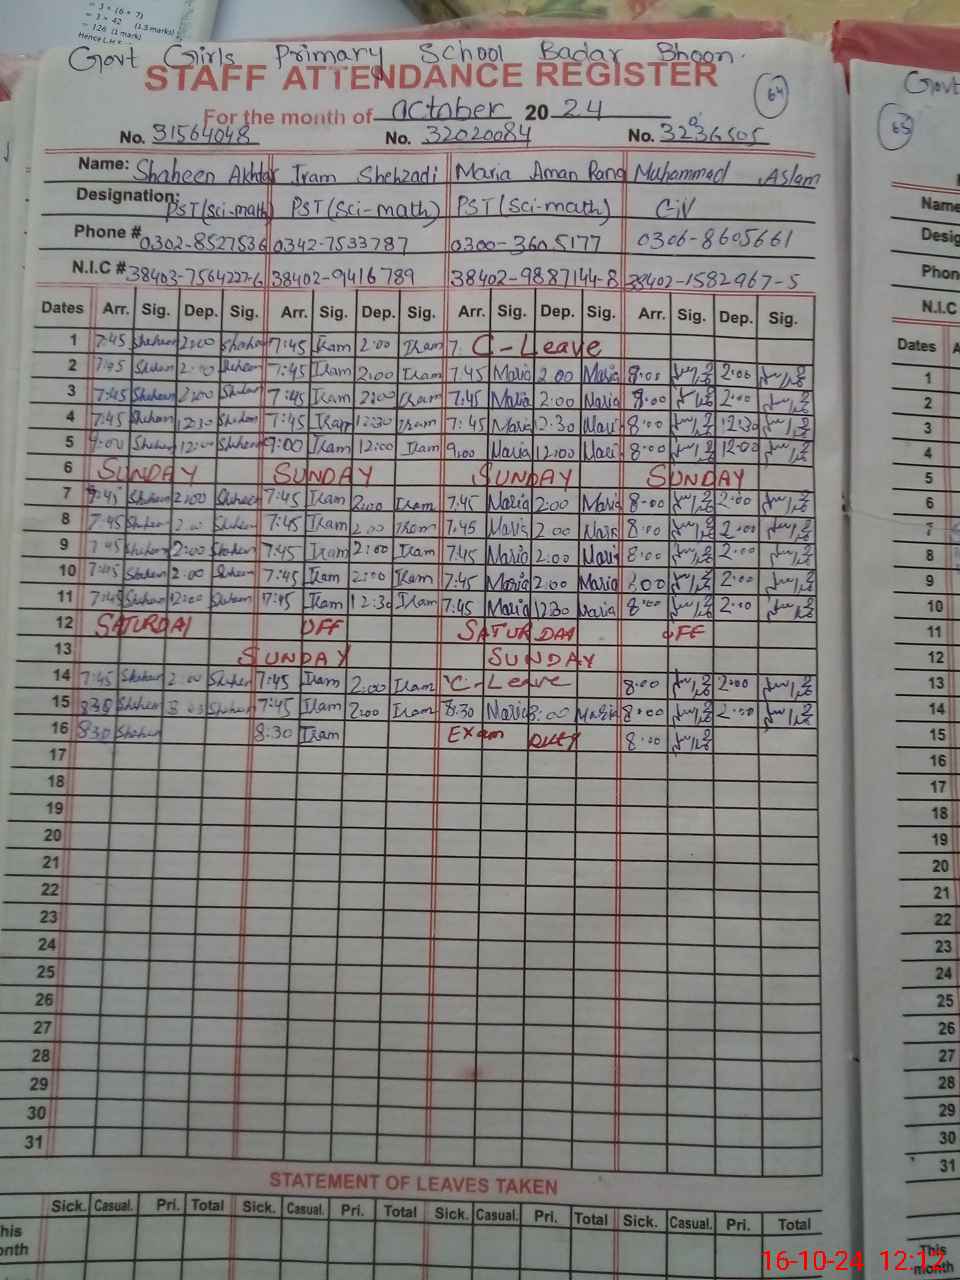 = 3 × (6 × 7)
= 3 × 42 (1.5 marks)
= 126 (1 mark)
Govt Girls Primary School Badar Bhoon.
STAFF ATTENDANCE REGISTER
64
For the month of October 2024
No. 31564048 No. 32020084 No. 32236505
Name: Shaheen Akhtar Iram Shehzadi Maria Aman Muhammad Aslam
Designation: PST(Sci-math) PST(Sci-math) PST(Sci-math) C-IV
Phone # 0302-8527536 0342-7533787 0300-3605177 0306-8605661
N.I.C # 38403-7564227-6 38402-9416789 38402-9887144-8 38402-1582967-5
Dates Arr. Sig. Dep. Sig. Arr. Sig. Dep. Sig. Arr. Sig. Dep. Sig. Arr. Sig. Dep. Sig.
1 7:45 Shaheen 2:00 Shaheen 7:45 Iram 2:00 Iram 7: C-Leave
2 7:45 Shaheen 2:00 Shaheen 7:45 Iram 2:00 Iram 7:45 Maria 2:00 Maria 8:00 2:00
3 7:45 Shaheen 2:00 Shaheen 7:45 Iram 2:00 Iram 7:45 Maria 2:00 Maria 8:00 2:00
4 7:45 Shaheen 12:30 Shaheen 7:45 Iram 12:30 Iram 7:45 Maria 12:30 Maria 8:00 12:30
5 9:00 Shaheen 12:00 Shaheen 9:00 Iram 12:00 Iram 9:00 Maria 12:00 Maria 8:00 12:00
6 SUNDAY SUNDAY SUNDAY SUNDAY
7 7:45 Shaheen 2:00 Shaheen 7:45 Iram 2:00 Iram 7:45 Maria 2:00 Maria 8:00 2:00
8 7:45 Shaheen 2:00 Shaheen 7:45 Iram 2:00 Iram 7:45 Maria 2:00 Maria 8:00 2:00
9 7:45 Shaheen 2:00 Shaheen 7:45 Iram 2:00 Iram 7:45 Maria 2:00 Maria 8:00 2:00
10 7:45 Shaheen 2:00 Shaheen 7:45 Iram 2:00 Iram 7:45 Maria 2:00 Maria 8:00 2:00
11 7:45 Shaheen 12:00 Shaheen 7:45 Iram 12:30 Iram 7:45 Maria 12:30 Maria 8:00 2:00
12 SATURDAY OFF SATURDAY OFF
13 SUNDAY SUNDAY
14 7:45 Shaheen 2:00 Shaheen 7:45 Iram 2:00 Iram C-Leave 8:00 2:00
15 8:30 Shaheen Shaheen 7:45 Iram 2:00 Iram 8:30 Maria 8:00 Maria 8:00 2:00
16 8:30 Shaheen 8:30 Iram Exam Duty 8:00
17
18
19
20
21
22
23
24
25
26
27
28
29
30
31
STATEMENT OF LEAVES TAKEN
Sick. Casual. Pri. Total Sick. Casual. Pri. Total Sick. Casual. Pri. Total Sick. Casual. Pri. Total
Govt
65
Name
Desig
Phon
N.I.C
Dates
1
2
3
4
5
6
7
8
9
10
11
12
13
14
15
16
17
18
19
20
21
22
23
24
25
26
27
28
29
30
31
This
month
16-10-24 12:12